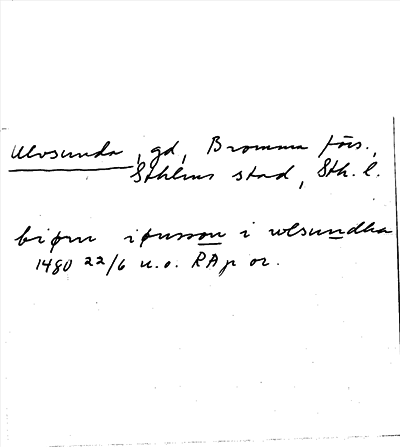 Ulvsunda, gd, Bromma förs.,
Sthlms stad, Sth. l.
biørn iønsson i wlsundha
1480 22/6 u.o. RAp or.